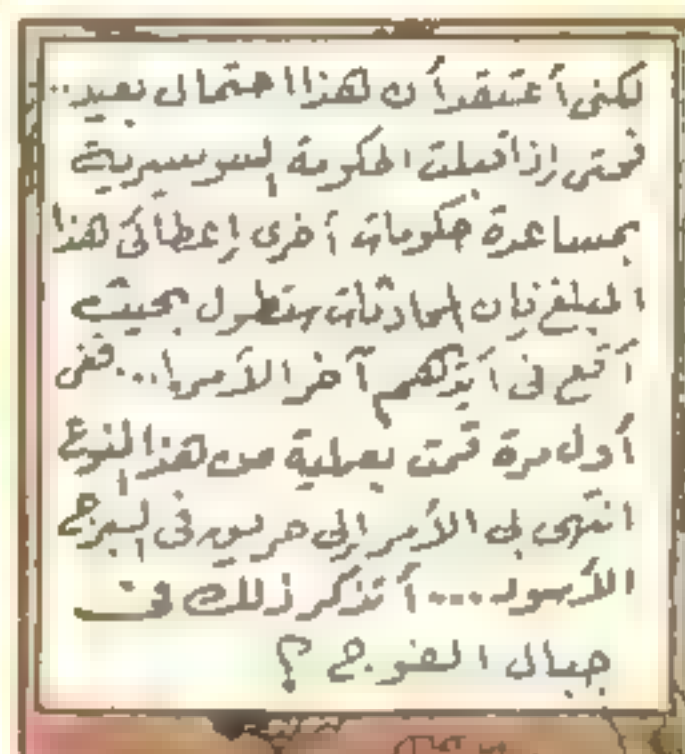 لكنى أعتقد أن هذا احتمال بعيد..
فحتى إذا قبلت الحكومة السويسرية
بمساعدة حكومات أخرى إعطائى هذا
المبلغ فإن المحادثات ستطول بحيث
أقع فى أيديهم آخر الأمر!... ففى
أول مرة قمت بعملية من هذا النوع
انتهى بى الأمر إلى حريق فى البرج
الأسود... أتذكر ذلك فى
جبال الفوج ؟